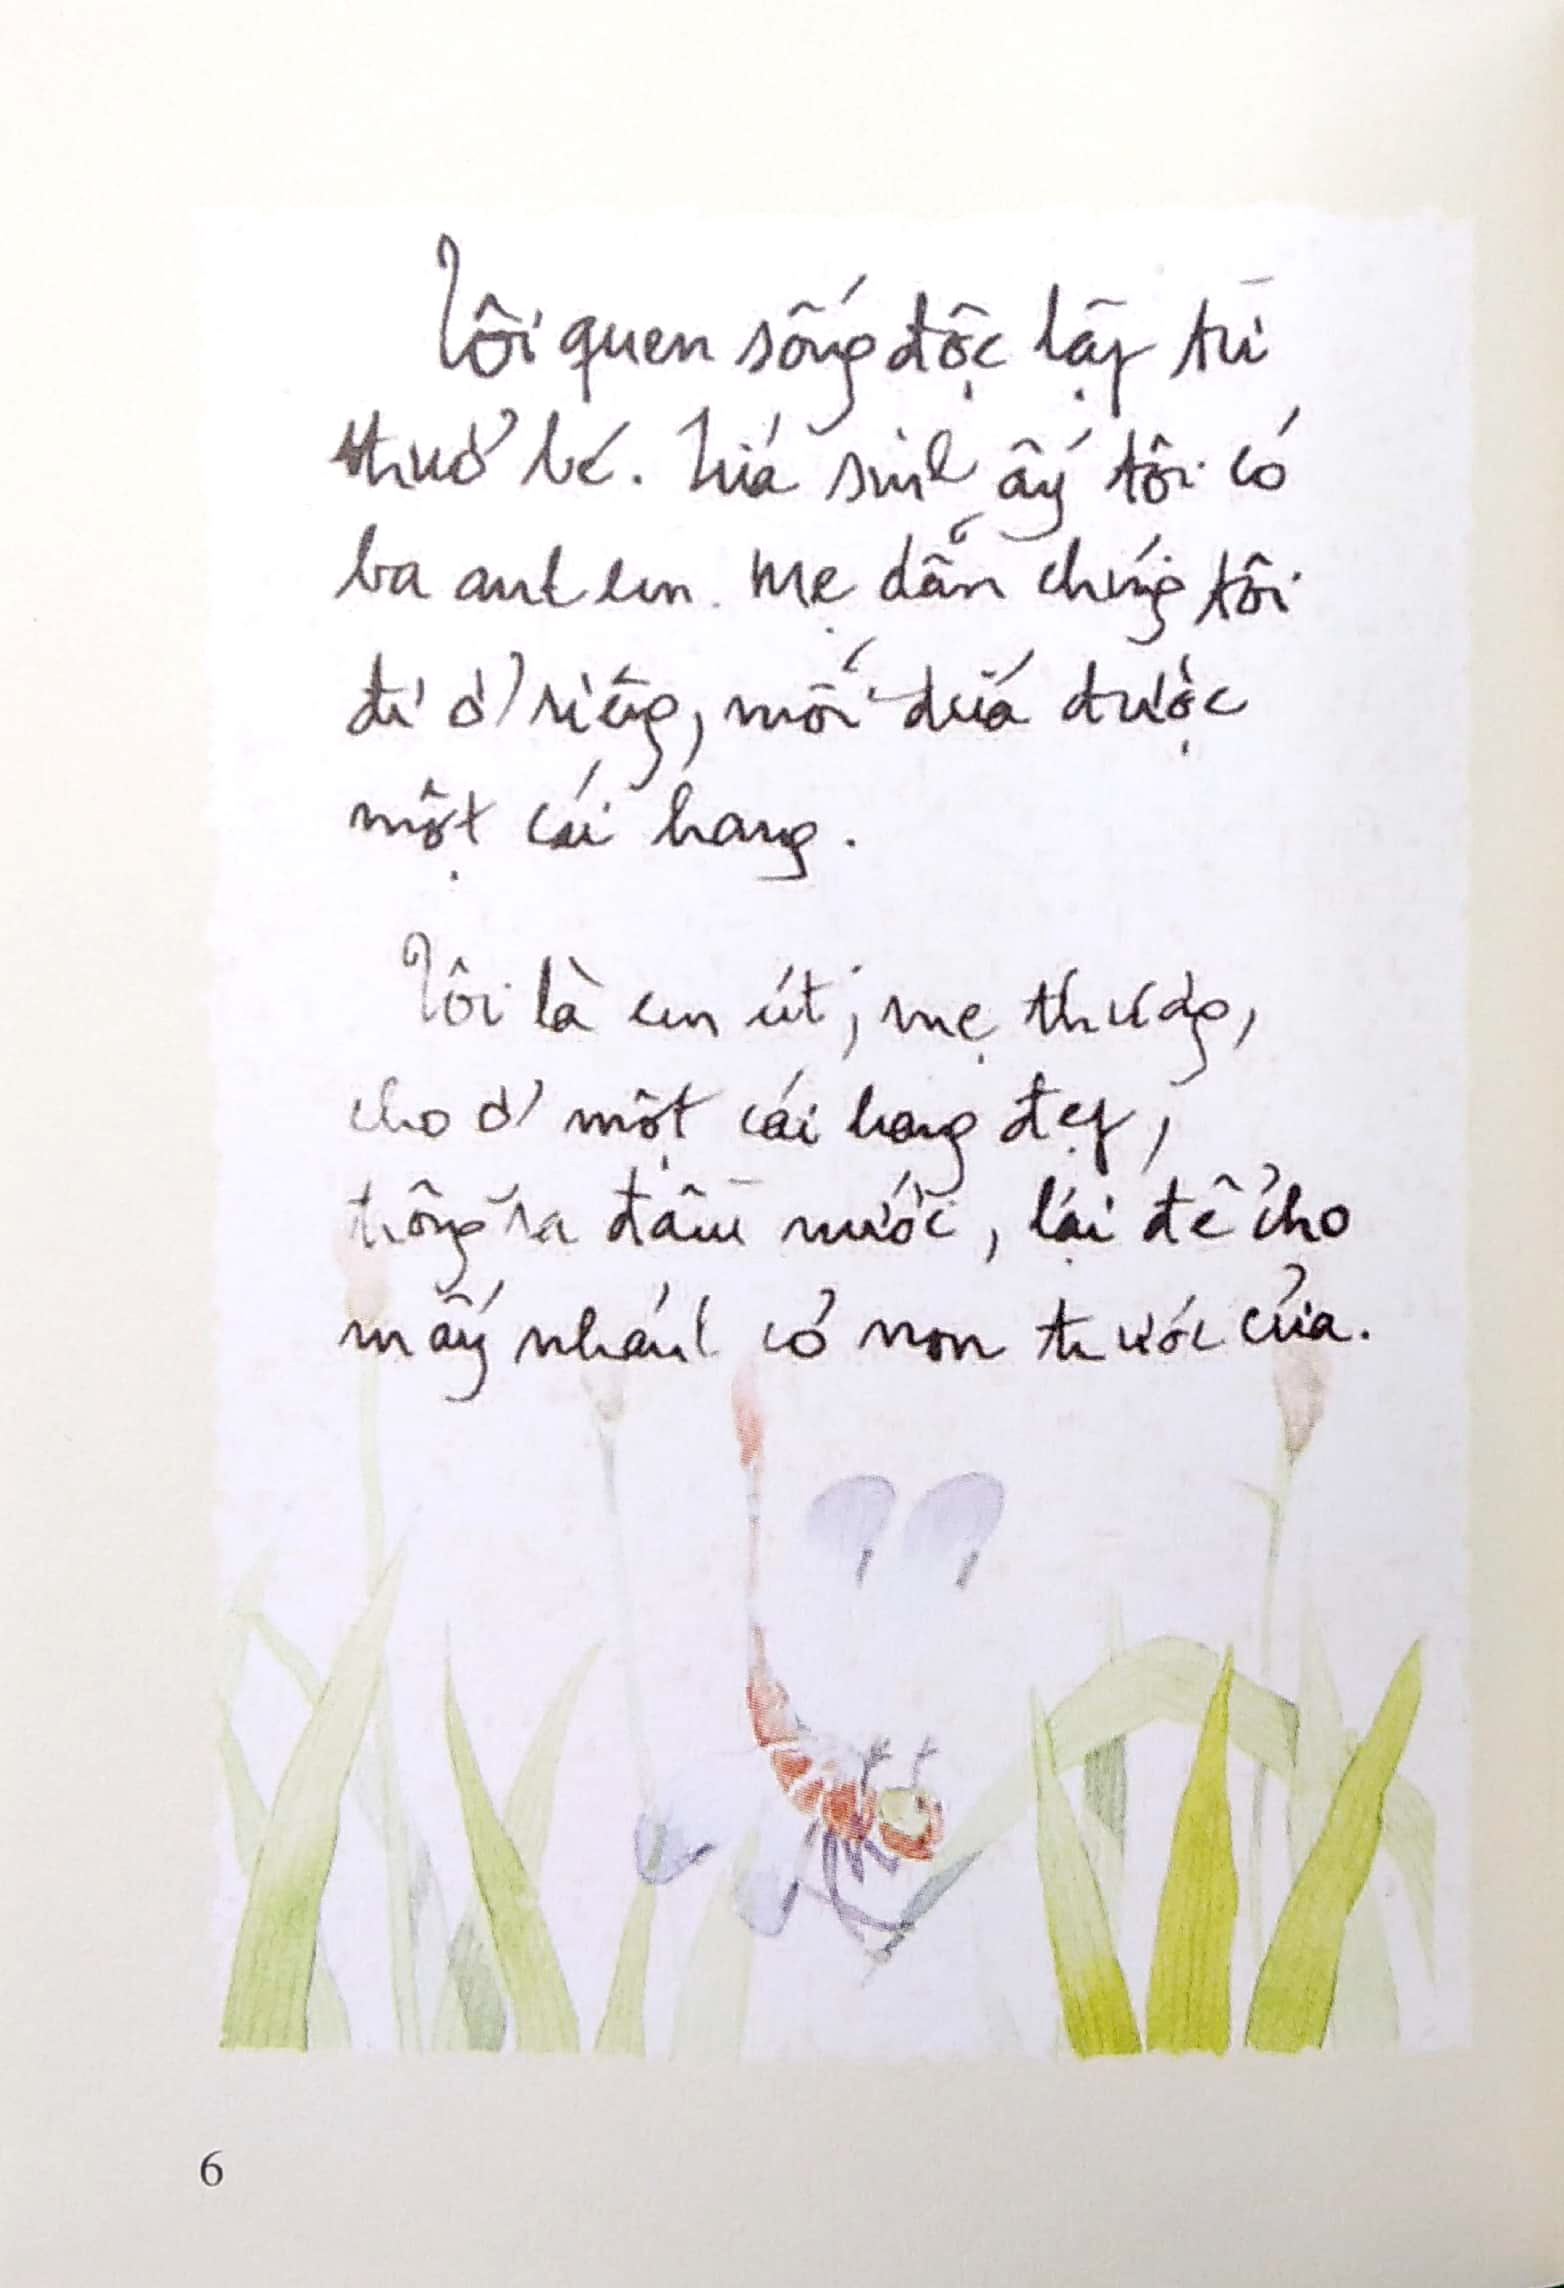 Tôi quen sống độc lập từ
thuở bé. Lứa sinh ấy tôi có
ba anh em. Mẹ dẫn chúng tôi
đi ở riêng, mỗi đứa được
một cái hang.
Tôi là em út, mẹ thương,
cho ở một cái hang đẹp,
trông ra đầm nước, lại để cho
mấy nhánh cỏ non trước cửa.
6